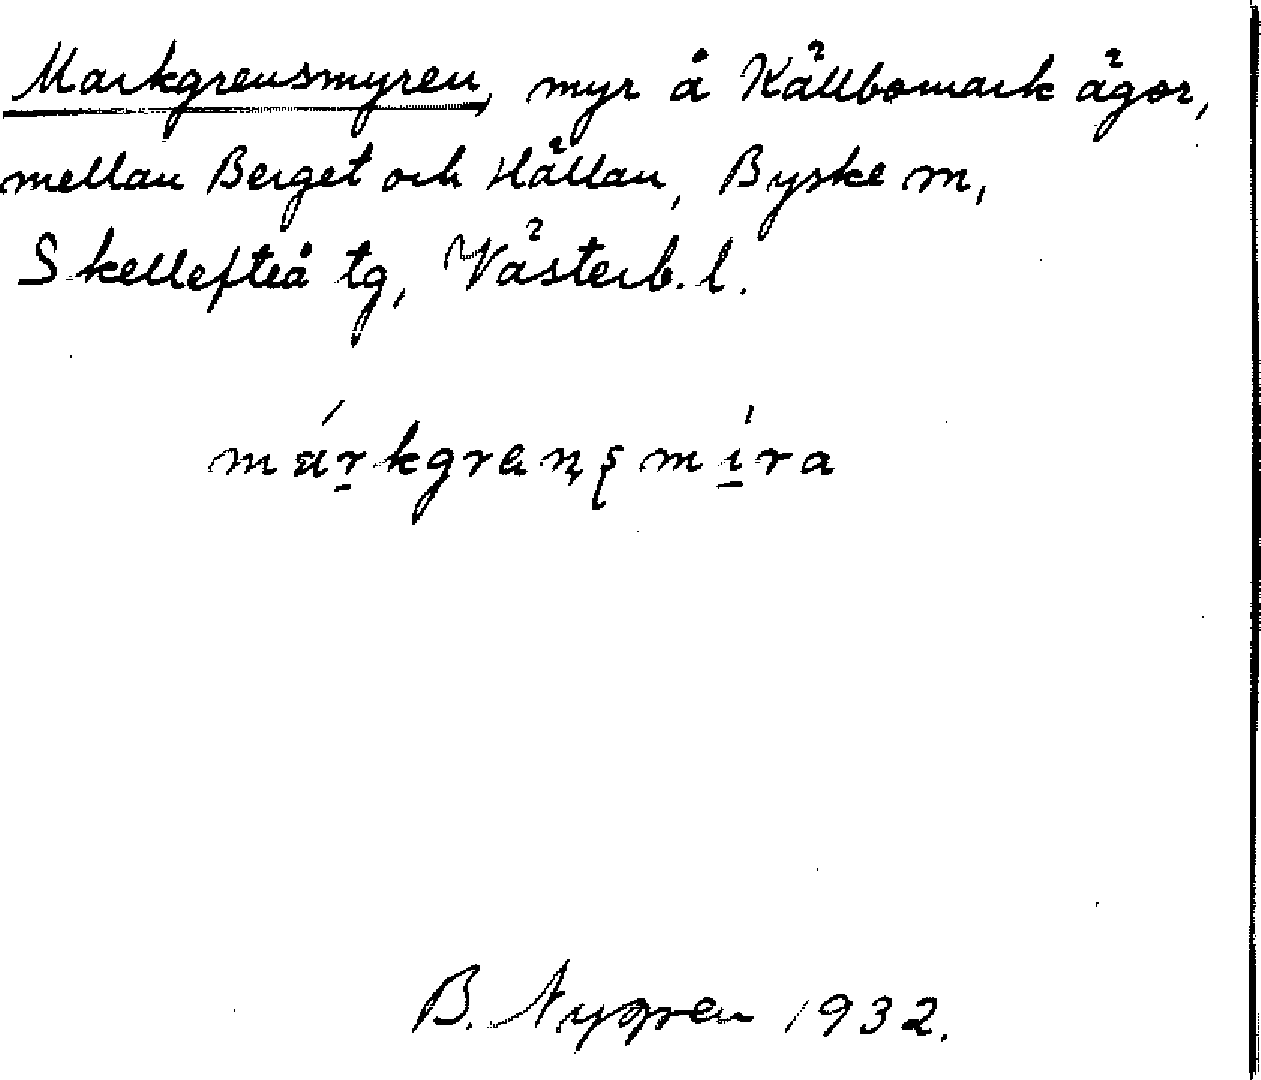 Markgrensmyren, myr å Källbomark ägor,
mellan Berget och Hällan, Byske sn,
Skellefteå tg, Västerb. l.
márkgrensmíra
B. Nygren 1932.